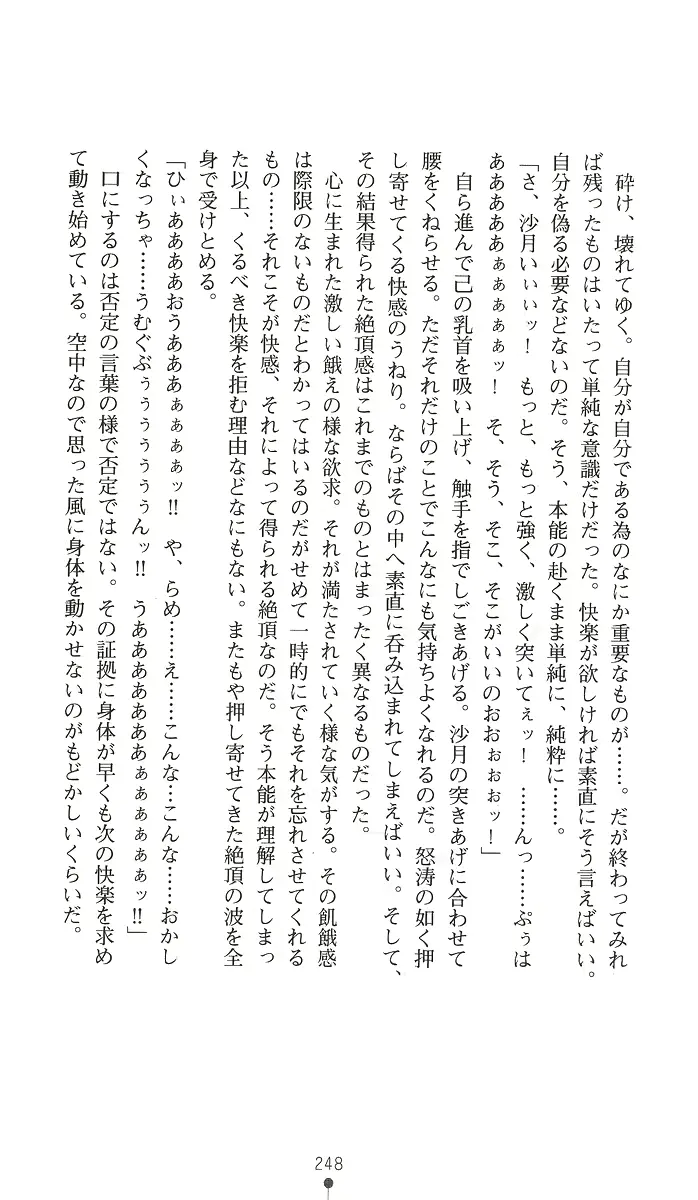 砕け、壊れてゆく。自分が自分である為のなにか重要なものが……。だが終わってみれ
ば残ったものはいたって単純な意識だけだった。快楽が欲しければ素直にそう言えばいい。
自分を偽る必要などないのだ。そう、本能の赴くまま単純に、純粋に……。
「さ、沙月いぃぃッ！　もっと、もっと強く、激しく突いてぇッ！　……んっ……ぷぅは
あああああぁぁぁぁぁッ！　そ、そう、そこ、そこがいいのおおぉぉぉッ！」
　自ら進んで己の乳首を吸い上げ、触手を指でしごきあげる。沙月の突きあげに合わせて
腰をくねらせる。ただそれだけのことでこんなにも気持ちよくなれるのだ。怒涛の如く押
し寄せてくる快感のうねり。ならばその中へ素直に呑み込まれてしまえばいい。そして、
その結果得られた絶頂感はこれまでのものとはまったく異なるものだった。
　心に生まれた激しい餓えの様な欲求。それが満たされていく様な気がする。その飢餓感
は際限のないものだとわかってはいるのだがせめて一時的にでもそれを忘れさせてくれる
もの……それこそが快感、それによって得られる絶頂なのだ。そう本能が理解してしまっ
た以上、くるべき快楽を拒む理由などなにもない。またもや押し寄せてきた絶頂の波を全
身で受けとめる。
「ひぃああああおうあああぁぁぁぁッ!!　や、らめ……え……こんな…こんな……おかし
くなっちゃ……うむぐぶぅぅぅぅぅぅんッ!!　うああああああああぁぁぁぁぁぁッ!!」
　口にするのは否定の言葉の様で否定ではない。その証拠に身体が早くも次の快楽を求め
て動き始めている。空中なので思った風に身体を動かせないのがもどかしいくらいだ。
248